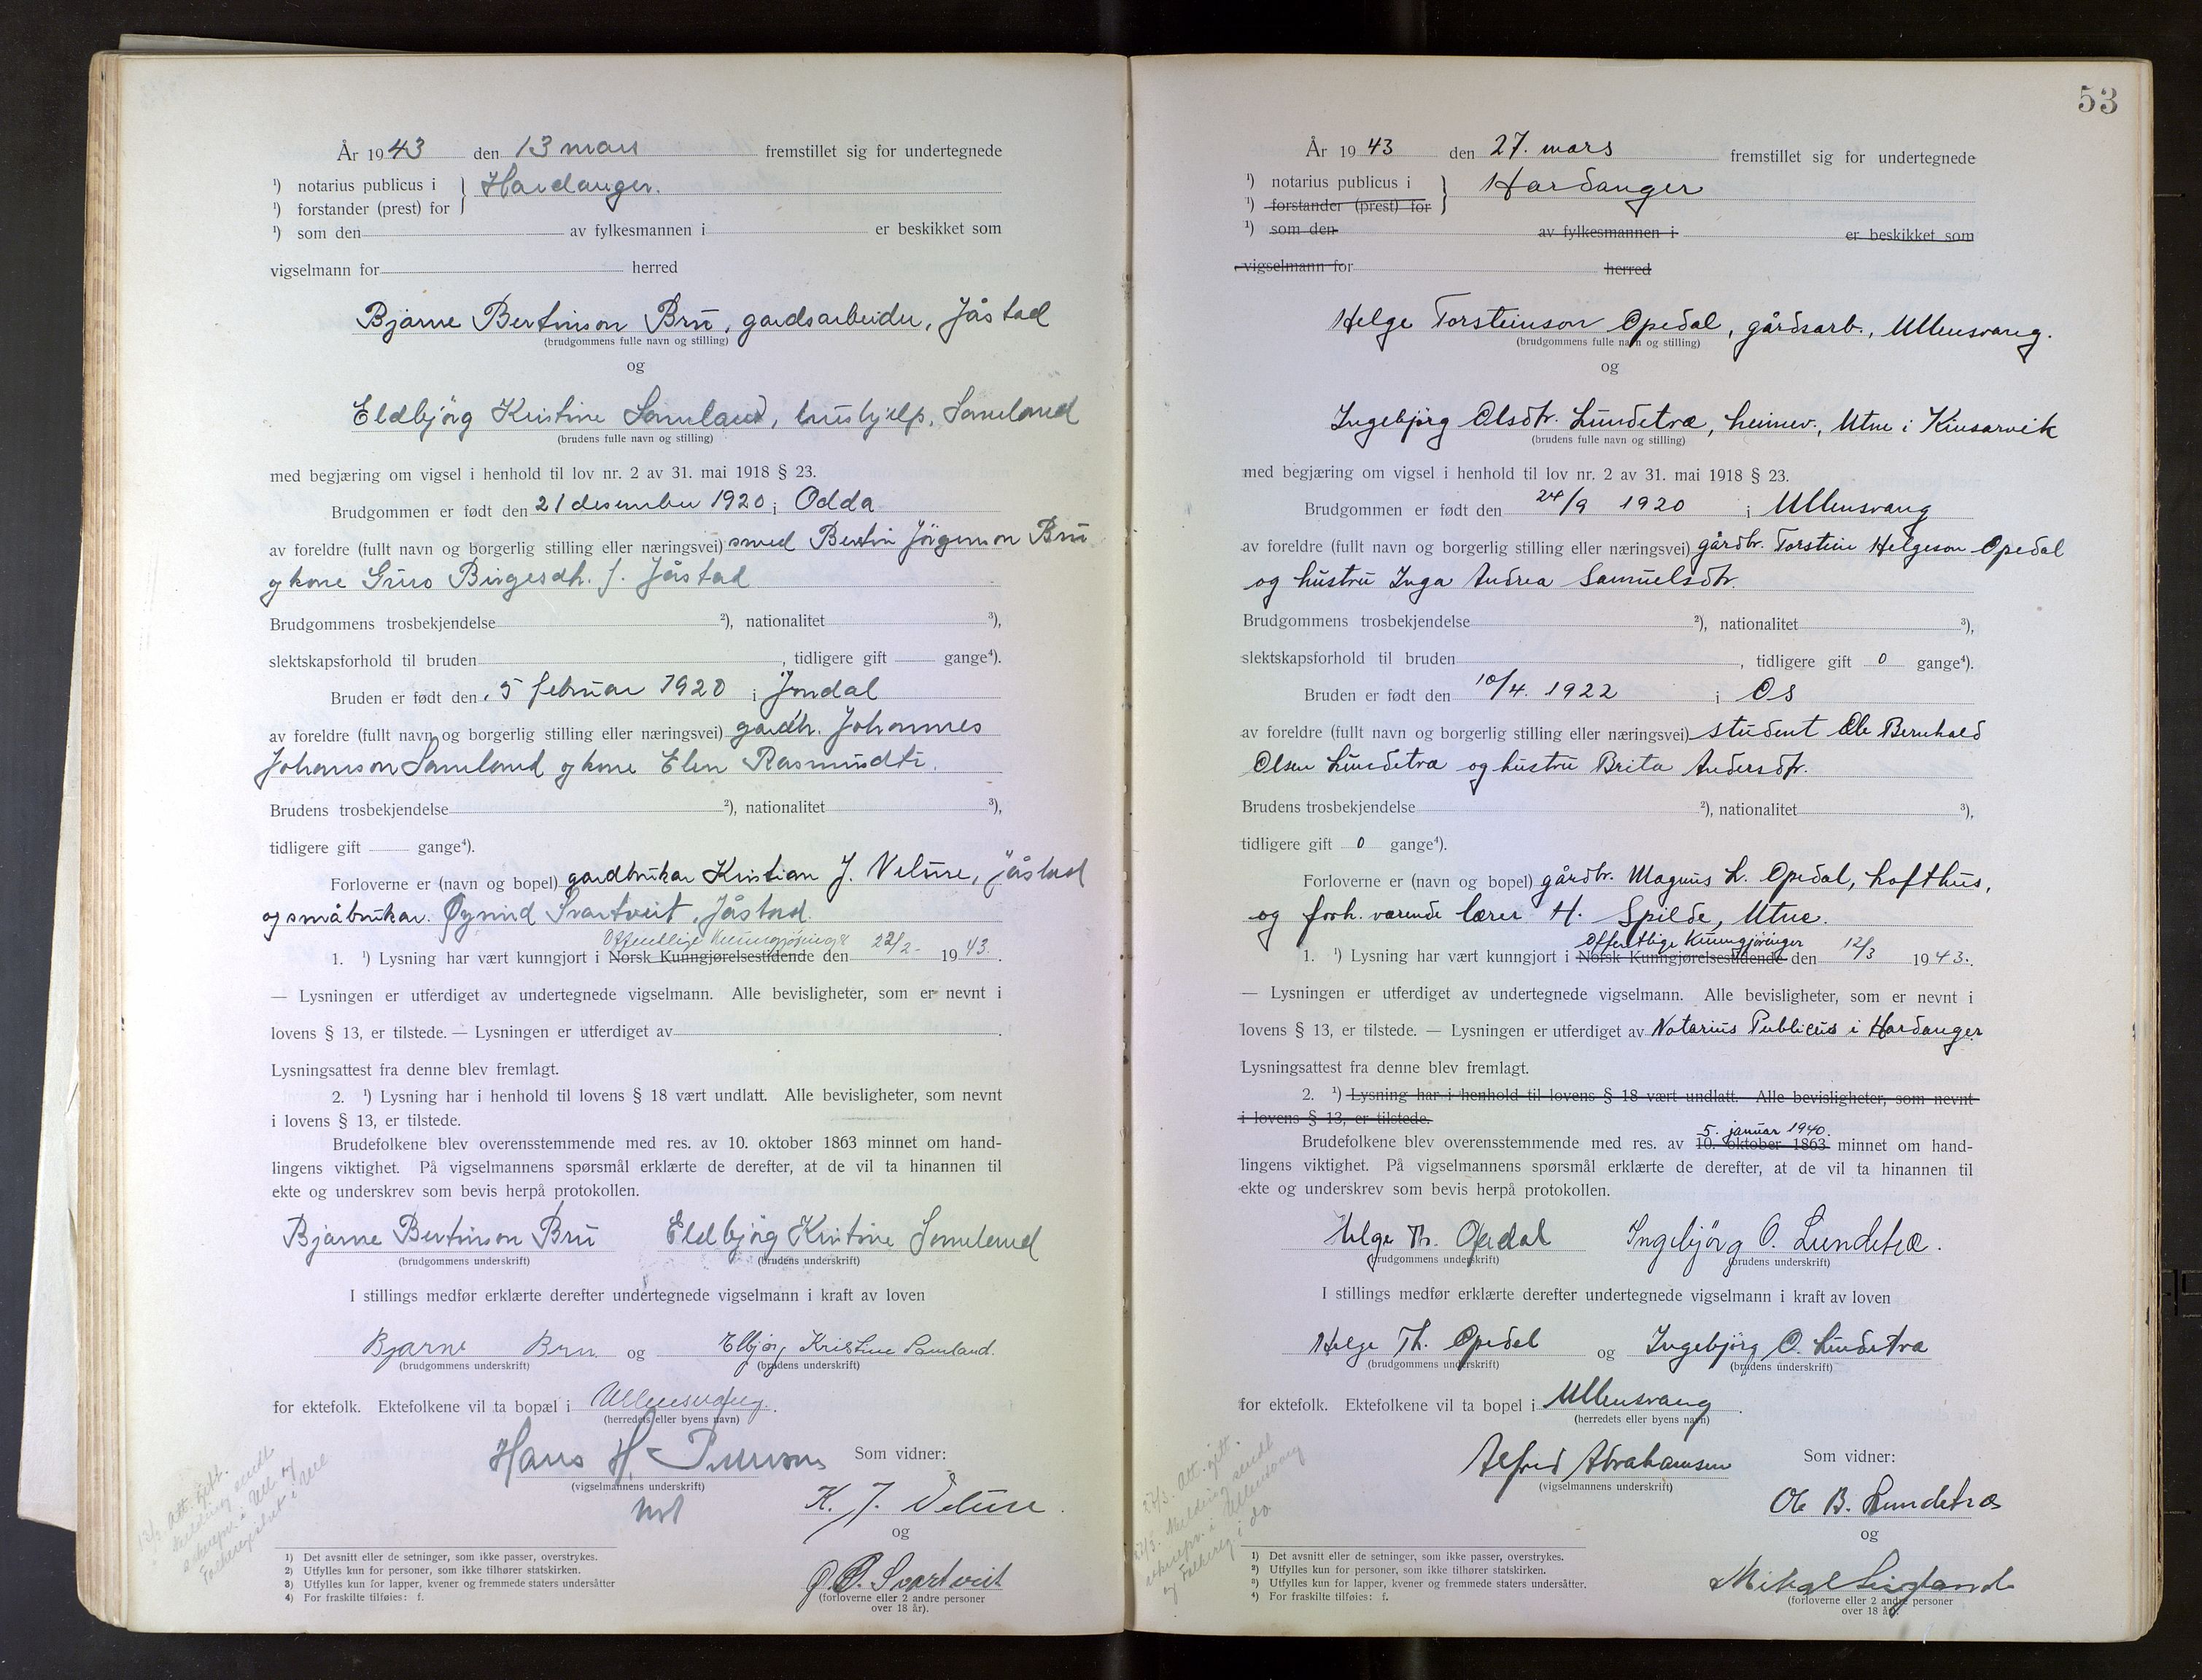 År 1943 den 13 mars fremstillet sig for undertegnede
¹) notarius publicus i } Hardanger.
¹) forstander (prest) for
¹) som den av fylkesmannen i er beskikket som
vigselmann for herred
Bjarne Bertinson Bru, gardsarbeider, Jåstad
(brudgommens fulle navn og stilling)
og
Eldbjörg Kristine Samland, hushjelp, Samland
(brudens fulle navn og stilling)
med begjæring om vigsel i henhold til lov nr. 2 av 31. mai 1918 § 23.
Brudgommen er født den 21 desember 1920 i Odda
av foreldre (fullt navn og borgerlig stilling eller næringsvei) smed Bertin Jörgenson Bru
og kone Guro Birgesdtr. f. Jåstad
Brudgommens trosbekjendelse ²), nationalitet ³),
slektskapsforhold til bruden , tidligere gift gange⁴).
Bruden er født den 5 februar 1920 i Jondal
av foreldre (fullt navn og borgerlig stilling eller næringsvei) gardbr. Johannes
Johanson Samland og kone Elen Rasmusdtr.
Brudens trosbekjendelse ²), nationalitet ³),
tidligere gift gange⁴).
Forloverne er (navn og bopel) gardbrukar Kristian J. Velure, Jåstad
og småbrukar Øyvind Svartveit, Jåstad.
Offentlige Kunngjøringer
1. ¹) Lysning har vært kunngjort i Norsk Kunngjørelsestidende den 22/2 - 1943.
— Lysningen er utferdiget av undertegnede vigselmann. Alle bevisligheter, som er nevnt i
lovens § 13, er tilstede. — Lysningen er utferdiget av .
Lysningsattest fra denne blev fremlagt.
2. ¹) Lysning har i henhold til lovens § 18 vært undlatt. Alle bevisligheter, som nevnt
i lovens § 13, er tilstede.
Brudefolkene blev overensstemmende med res. av 10. oktober 1863 minnet om hand-
lingens viktighet. På vigselmannens spørsmål erklærte de derefter, at de vil ta hinannen til
ekte og underskrev som bevis herpå protokollen.
Bjarne Bertinson Bru Eldbjörg Kristine Samland
(brudgommens underskrift) (brudens underskrift)
I stillings medfør erklærte derefter undertegnede vigselmann i kraft av loven
Bjarne Bru og Elbjørg Kristine Samland.
(brudgommens underskrift) (brudens underskrift)
for ektefolk. Ektefolkene vil ta bopæl i Ullensvang.
(herredets eller byens navn)
Hans H. Som vidner:
(vigselmannens underskrift)
K. J. Velure
og
Ø. Svartveit
(forloverne eller 2 andre personer
over 18 år).
1) Det avsnitt eller de setninger, som ikke passer, overstrykes.
2) Utfylles kun for personer, som ikke tilhører statskirken.
3) Utfylles kun for lapper, kvener og fremmede staters undersåtter
4) For fraskilte tilføies: f.
53
År 1943 den 27. mars fremstillet sig for undertegnede
¹) notarius publicus i } Hardanger
¹) forstander (prest) for
¹) som den av fylkesmannen i er beskikket som
vigselmann for herred
Helge Torsteinson Opedal, gårdsarb., Ullensvang.
(brudgommens fulle navn og stilling)
og
Ingebjörg Olsdtr. Lundetræ, heimev., Utne i Kinsarvik
(brudens fulle navn og stilling)
med begjæring om vigsel i henhold til lov nr. 2 av 31. mai 1918 § 23.
Brudgommen er født den 24/9 1920 i Ullensvang
av foreldre (fullt navn og borgerlig stilling eller næringsvei) gårdbr. Torstein Helgeson Opedal
og hustru Inga Andrea Samuelsdtr.
Brudgommens trosbekjendelse ²), nationalitet ³),
slektskapsforhold til bruden , tidligere gift 0 gange⁴).
Bruden er født den 10/4. 1922 i Os
av foreldre (fullt navn og borgerlig stilling eller næringsvei) student Ole Bernhard
Olsen Lundetræ og hustru Brita Andersdtr.
Brudens trosbekjendelse ²), nationalitet ³),
tidligere gift 0 gange⁴).
Forloverne er (navn og bopel) gårdbr. Magnus L. Opedal, Lofthus,
og forh. værende lærer H. Spilde, Utne.
Offentlige Kunngjöringer
1. ¹) Lysning har vært kunngjort i Norsk Kunngjørelsestidende den 12/3 1943.
— Lysningen er utferdiget av undertegnede vigselmann. Alle bevisligheter, som er nevnt i
lovens § 13, er tilstede. — Lysningen er utferdiget av Notarius Publicus i Hardanger
Lysningsattest fra denne blev fremlagt.
2. ¹) Lysning har i henhold til lovens § 18 vært undlatt. Alle bevisligheter, som nevnt
i lovens § 13, er tilstede.
5. januar 1940.
Brudefolkene blev overensstemmende med res. av 10. oktober 1863 minnet om hand-
lingens viktighet. På vigselmannens spørsmål erklærte de derefter, at de vil ta hinannen til
ekte og underskrev som bevis herpå protokollen.
Helge Th. Opedal Ingebjörg O. Lundetræ.
(brudgommens underskrift) (brudens underskrift)
I stillings medfør erklærte derefter undertegnede vigselmann i kraft av loven
Helge Th. Opedal og Ingebjörg O. Lundetræ
(brudgommens underskrift) (brudens underskrift)
for ektefolk. Ektefolkene vil ta bopel i Ullensvang.
(herredets eller byens navn)
Alfred Abrahamsen Som vidner:
(vigselmannens underskrift)
Ole B. Lundetræ
og
(forloverne eller 2 andre personer
over 18 år).
1) Det avsnitt eller de setninger, som ikke passer, overstrykes.
2) Utfylles kun for personer, som ikke tilhører statskirken.
3) Utfylles kun for lapper, kvener og fremmede staters undersåtter.
4) For fraskilte tilføies: f.